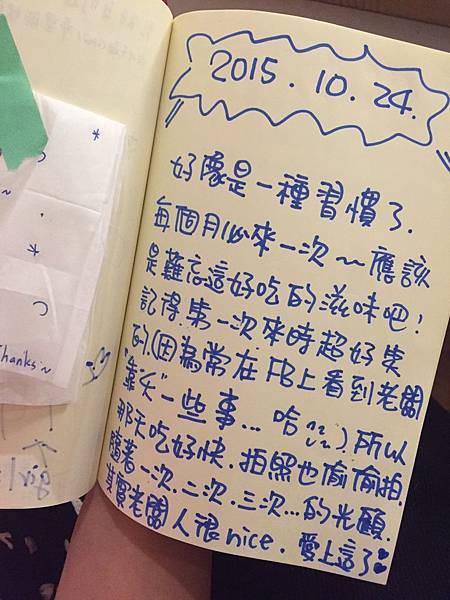 Thanks~
2015.10.24.
好像是一種習慣了.
每個月必來一次~~應該
是難忘這好吃的滋味吧!
記得第一次來時超好笑
的.(因為常在FB上看到老闆
"靠夭"一些事...哈 ) 所以
那天吃好快.拍照也偷偷拍.
隨著一次.二次.三次...的光顧.
其實老闆人很nice.愛上這了